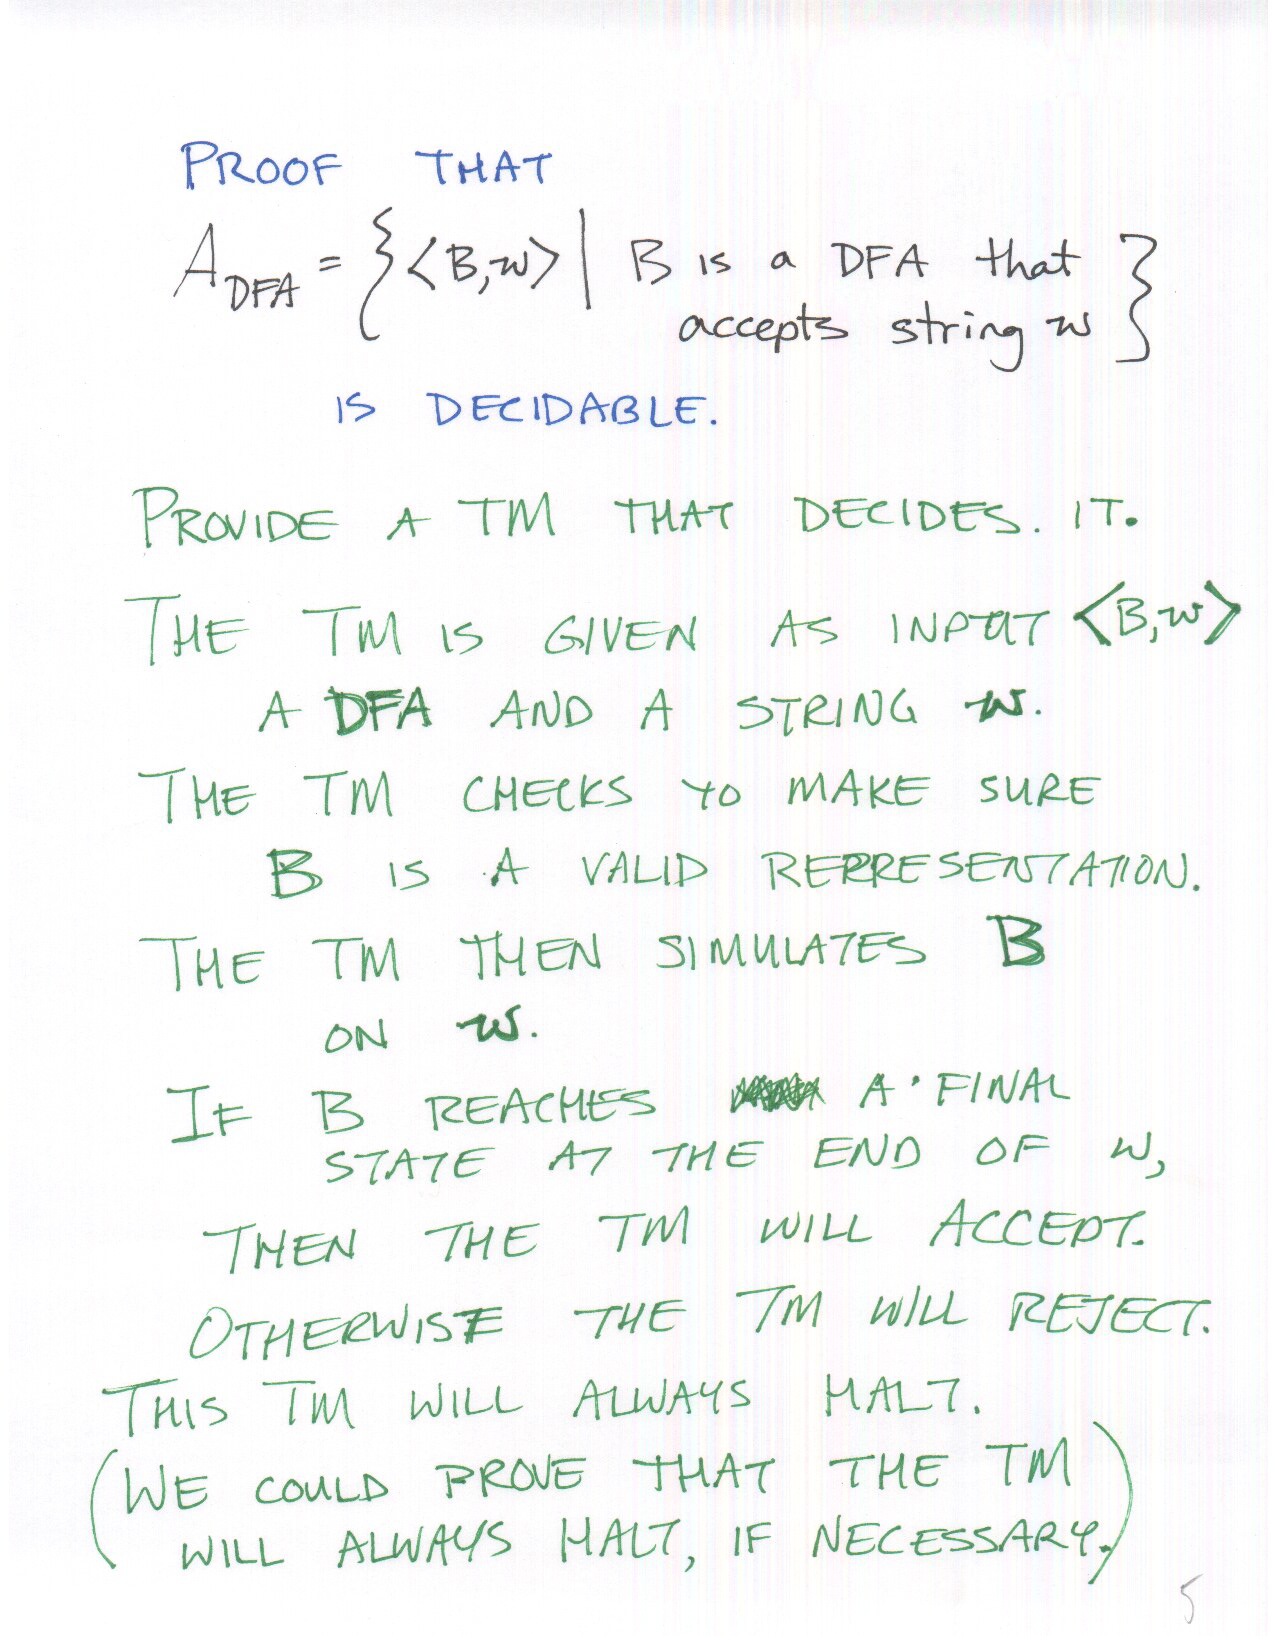 PROOF THAT
A_DFA = {<B,w> | B is a DFA that
accepts string w}
IS DECIDABLE.
PROVIDE A TM THAT DECIDES. IT.
THE TM IS GIVEN AS INPUT <B,w>
A DFA AND A STRING w.
THE TM CHECKS TO MAKE SURE
B IS A VALID REPRESENTATION.
THE TM THEN SIMULATES B
ON w.
IF B REACHES A FINAL
STATE AT THE END OF w,
THEN THE TM WILL ACCEPT.
OTHERWISE THE TM WILL REJECT.
THIS TM WILL ALWAYS HALT.
(WE COULD PROVE THAT THE TM
WILL ALWAYS HALT, IF NECESSARY.)
5